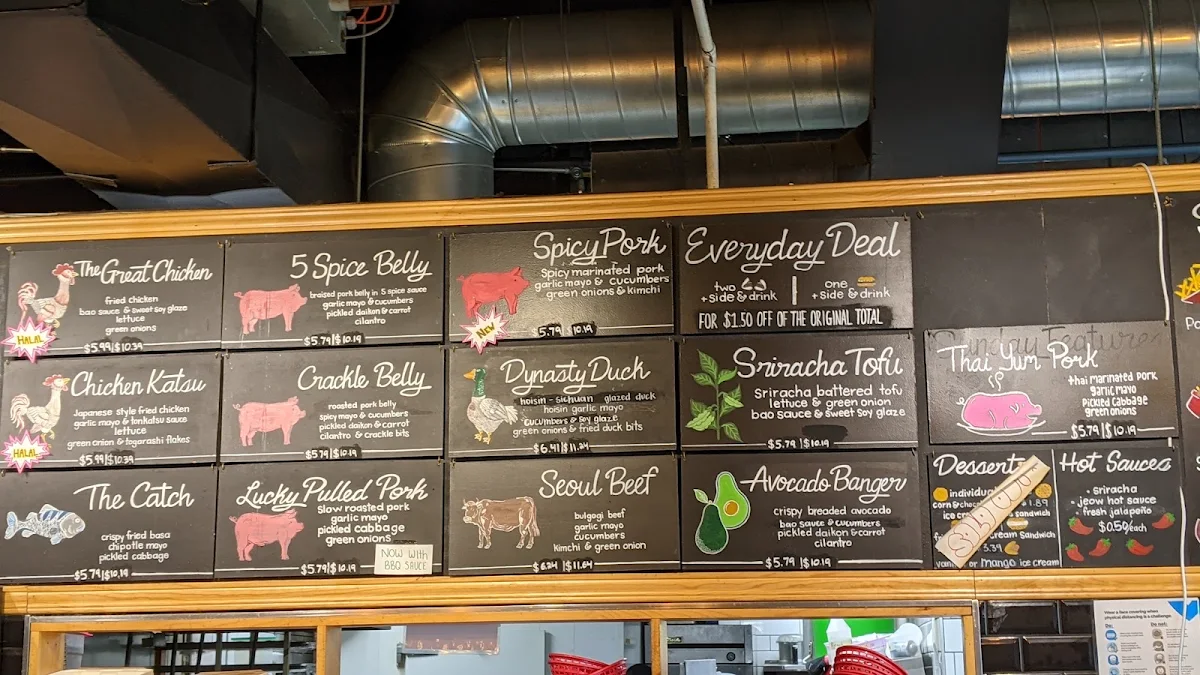 The Great Chicken
fried chicken
bao sauce & sweet soy glaze
lettuce
green onions
$5.99|$10.39
HALAL
5 Spice Belly
braised pork belly in 5 spice sauce
garlic mayo & cucumbers
pickled daikon & carrot
cilantro
$5.79|$10.19
Spicy Pork
Spicy marinated pork
garlic mayo & cucumbers
green onions & kimchi
$5.79|$10.19
NEW
Everyday Deal
two
+side & drink
one
+side & drink
FOR $1.50 OFF OF THE ORIGINAL TOTAL
Chicken Katsu
Japanese style fried chicken
garlic mayo & tonkatsu sauce
lettuce
green onion & togarashi flakes
$5.99|$10.39
HALAL
Crackle Belly
roasted pork belly
spicy mayo & cucumbers
pickled daikon & carrot
cilantro & crackle bits
$5.79|$10.19
Dynasty Duck
hoisin-sichuan glazed duck
hoisin garlic mayo
cucumbers & soy glaze
green onions & fried duck bits
$6.41|$11.24
Sriracha Tofu
Sriracha battered tofu
lettuce & green onion
bao sauce & sweet soy glaze
$5.79|$10.19
Sunday Feature
Thai Yum Pork
thai marinated pork
garlic mayo
pickled cabbage
green onions
$5.79|$10.19
The Catch
crispy fried basa
chipotle mayo
pickled cabbage
$5.79|$10.19
Lucky Pulled Pork
slow roasted pork
garlic mayo
pickled cabbage
green onions
$5.79|$10.19
NOW WITH
BBQ SAUCE
Seoul Beef
bulgogi beef
garlic mayo
cucumbers
kimchi & green onion
$6.24|$11.64
Avocado Banger
crispy breaded avocado
bao sauce & cucumbers
pickled daikon & carrot
cilantro
$5.79|$10.19
Desserts
individual
1.89
ice cream sandwich
cream Sandwich
3.39
vanilla or mango ice cream
Sold Out
Hot Sauces
• sriracha
• jeow hot sauce
• fresh jalapeño
$0.50/each
Wear a face covering when
physical distancing is a challenge.
Do:
Do not: